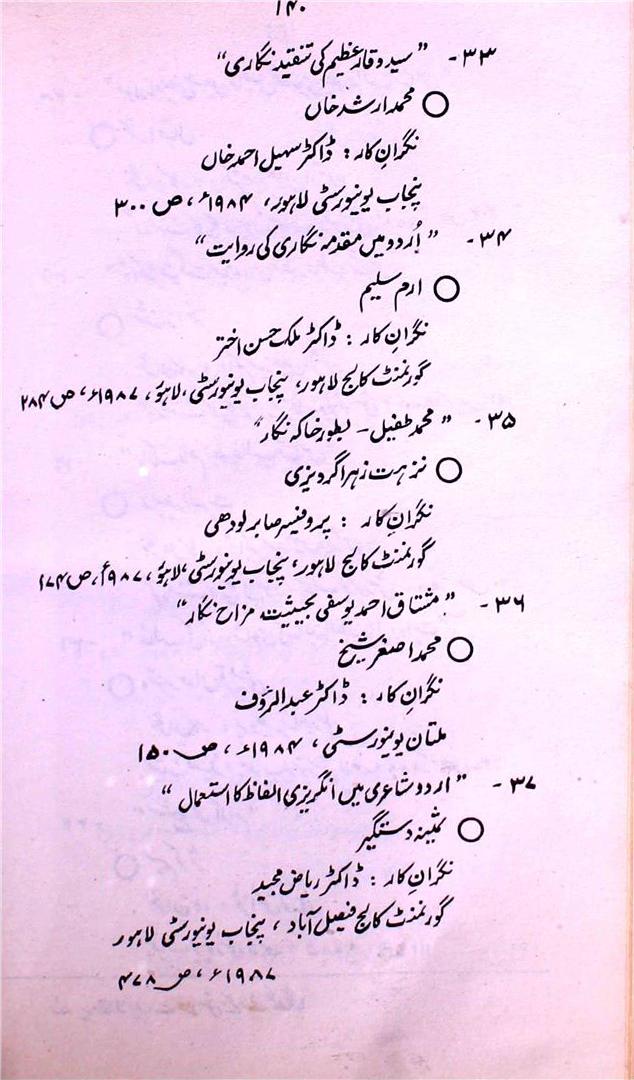 ۱۴۰
۳۳- "سید وقار عظیم کی تنقید نگاری"
○ محمد ارشد خاں
نگرانِ کار : ڈاکٹر سہیل احمد خاں
پنجاب یونیورسٹی لاہور، ۱۹۸۴ء، ص ۳۰۰
۳۴- "اُردو میں مقدمہ نگاری کی روایت"
○ ارم سلیم
نگرانِ کار : ڈاکٹر ملک حسن اختر
گورنمنٹ کالج لاہور، پنجاب یونیورسٹی، لاہور، ۱۹۸۷ء، ص ۲۸۴
۳۵- "محمد طفیل - بطور خاکہ نگار"
○ نزہت زہرا گردیزی
نگرانِ کار : پروفیسر صابر لودھی
گورنمنٹ کالج لاہور، پنجاب یونیورسٹی، لاہور، ۱۹۸۷ء، ص ۱۷۴
۳۶- "مشتاق احمد یوسفی بحیثیت مزاح نگار"
○ محمد اصغر شیخ
نگرانِ کار : ڈاکٹر عبدالرؤف
ملتان یونیورسٹی، ۱۹۸۴ء، ص ۱۵۰
۳۷- "اردو شاعری میں انگریزی الفاظ کا استعمال"
○ ثمینہ دستگیر
نگرانِ کار : ڈاکٹر ریاض مجید
گورنمنٹ کالج فیصل آباد، پنجاب یونیورسٹی لاہور
۱۹۸۷ء، ص ۴۷۸